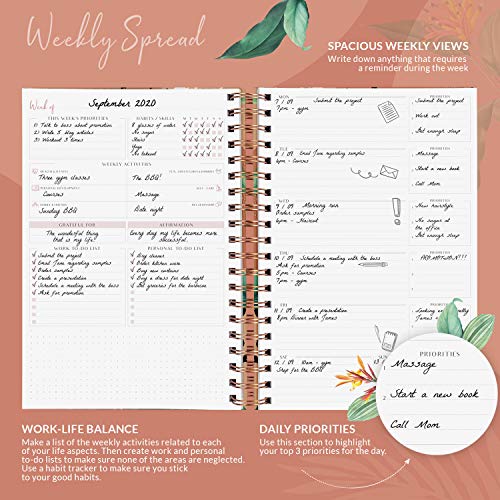 Weekly Spread
SPACIOUS WEEKLY VIEWS
Write down anything that requires
a reminder during the week
Week of
September 2020
THIS WEEK'S PRIORITIES
1) Talk to boss about promotion
2) Write 5 blog articles
3) Workout 3 times
HABITS / SKILLS
M T W T F S S
8 glasses of water
No sugar
Stairs
Yoga
No takeout
WEEKLY ACTIVITIES
Three gym classes
The BBQ!
Courses
Massage
Sunday BBQ
Date night
GRATEFUL FOR
The wonderful thing
that is my life!
AFFIRMATION
Every day my life becomes more
successful.
WORK TO DO LIST
Submit the project
Email Jane regarding samples
Order samples
Create a presentation
Schedule a meeting with the boss
Ask for promotion
PERSONAL TO DO LIST
Buy dinner
Order kitchen ware
Buy new curtains
Buy a dress for date night
Get groceries for the barbecue
MON
7 / 09
Submit the project
7pm - gym
PRIORITIES
Work out
Get enough sleep
TUE
8 / 09
Email Jane regarding samples
6pm - Courses
7pm - gym
PRIORITIES
Massage
Start a new book
Call Mom
WED
9 / 09
Morning run
Order samples
6pm - Haircut
PRIORITIES
New hairstyle
No sugar at
the office
Get enough sleep
THU
10 / 09
Schedule a meeting with the boss
Ask for promotion
6pm - Courses
7pm - Massage
PRIORITIES
FRI
11 / 09
Create a presentation
8pm Dinner with James
PRIORITIES
SAT
12 / 09
10am - gym
Shop for the BBQ
PRIORITIES
Massage
Start a new book
Call Mom
WORK-LIFE BALANCE
Make a list of the weekly activities related to each
of your life aspects. Then create work and personal
to-do lists to make sure none of the areas are neglected.
Use a habit tracker to make sure you stick
to your good habits.
DAILY PRIORITIES
Use this section to highlight
your top 3 priorities for the day.